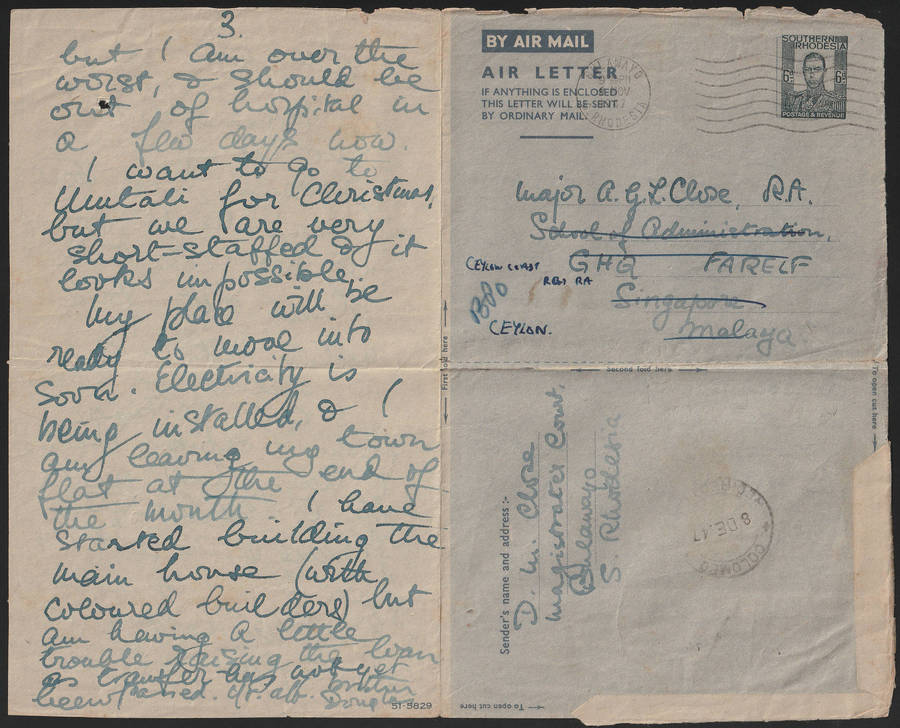 3.
but I am over the
worst, & should be
out of hospital in
a few days now.
I want to go to
Umtali for Christmas,
but we are very
short-staffed & it
looks impossible.
My place will be
ready to move into
soon. Electricity is
being installed, & I
am leaving my town
flat at the end of
the month. I have
started building the
main house (with
coloured builders) but
am having a little
trouble raising the loan
as transfer has not yet
been passed.
Douglas
51-5829
BY AIR MAIL
AIR LETTER
IF ANYTHING IS ENCLOSED
THIS LETTER WILL BE SENT
BY ORDINARY MAIL.
NOV
RHODESIA
SOUTHERN
RHODESIA
6d 6d
POSTAGE & REVENUE
Major A.G.L. Close, R.A.
School of Administration,
GHQ FARELF
Singapore
Malaya.
CEYLON COAST
REGT RA
CEYLON.
First fold here
Second fold here
To open cut here
Sender's name and address :-
D. M. Close
Magistrates Court,
Bulawayo
S. Rhodesia
COLOMBO
8 DE. 47
To open cut here